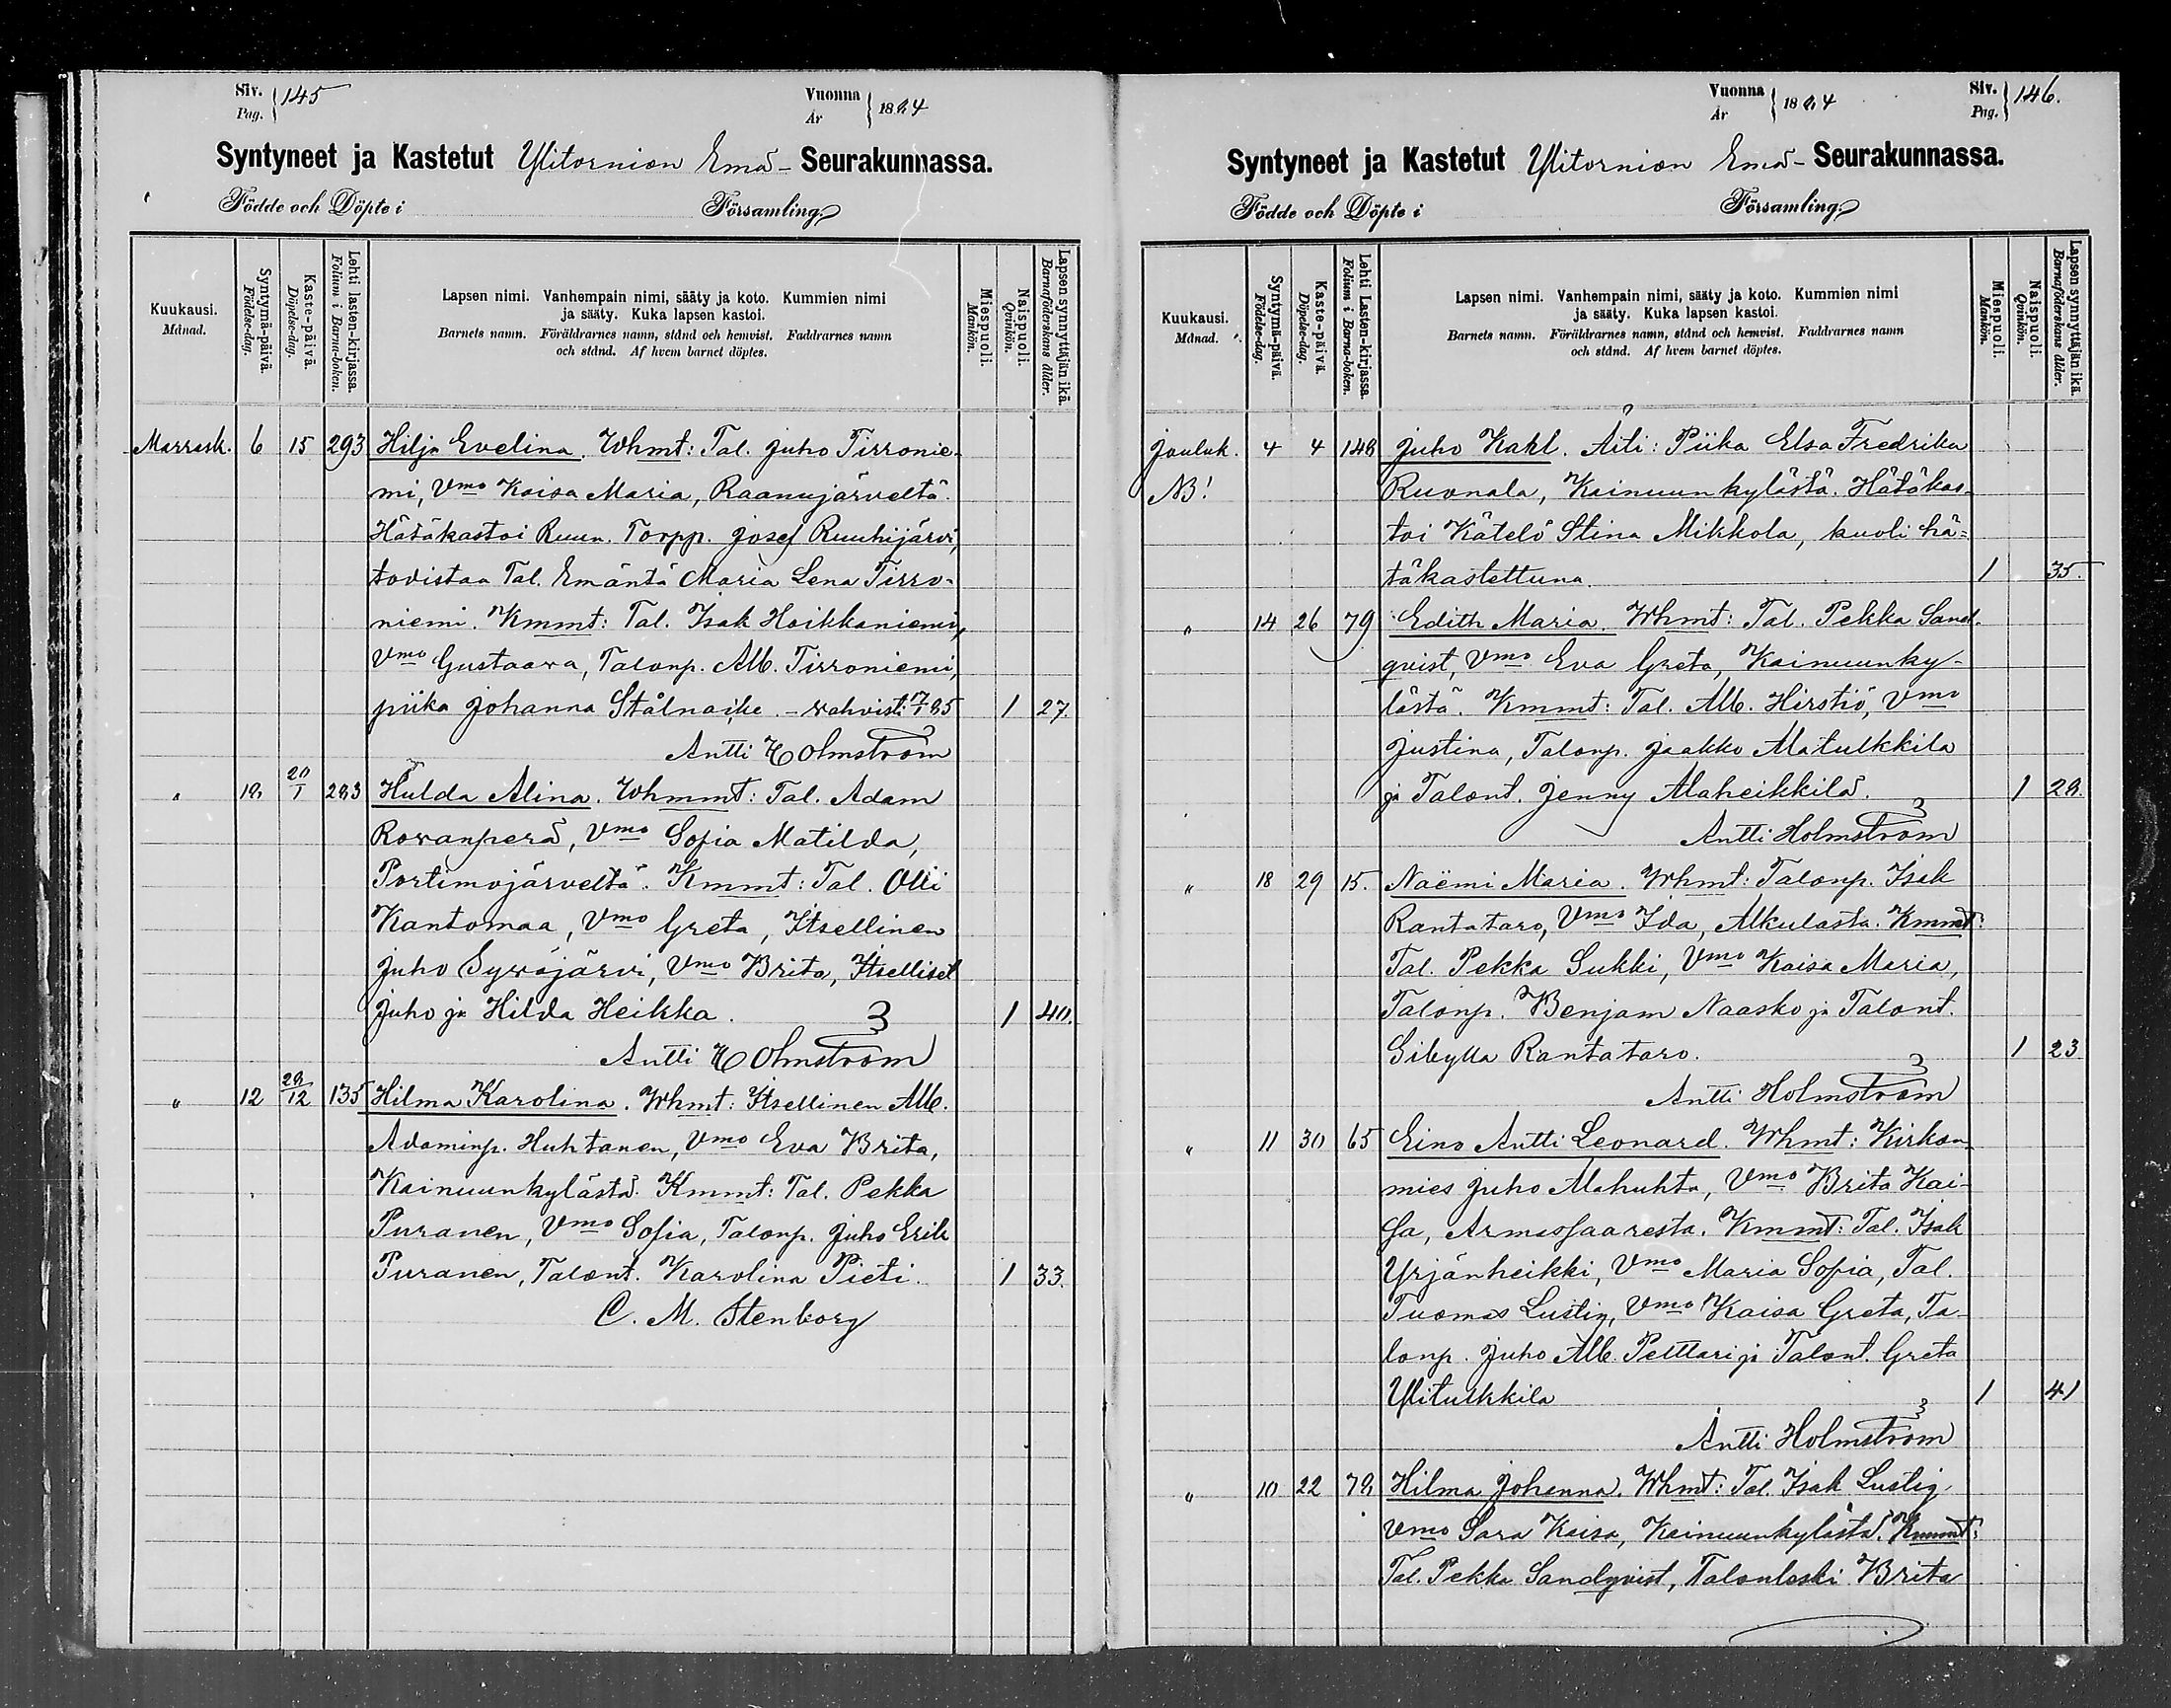 Siv. Pag. } 145
Vuonna År } 1884
Syntyneet ja Kastetut Ylitornion Emä- Seurakunnassa.
Födde och Döpte i Församling
Kuukausi. Månad.
Syntymä-päivä. Födelse-dag.
Kaste-päivä. Döpelse-dag.
Lehti lasten-kirjassa. Folium i Barna-boken.
Lapsen nimi. Vanhempain nimi, sääty ja koto. Kummien nimi
ja sääty. Kuka lapsen kastoi.
Barnets namn. Föräldrarnes namn, stånd och hemvist. Faddrarnes namn
och stånd. Af hvem barnet döptes.
Miespuoli. Mankön.
Naispuoli. Qvinkön.
Lapsen synnyttäjän ikä. Barnaföderskans ålder.
Marrask. 6 15 293 Hilja Evelina. Whmt: Tal. Juho Tirronie-
mi, Vmo Kaisa Maria, Raanujärveltä.
Hätäkastoi Ruun. Torpp. Josef Ruuhijärvi,
todistaa Tal. Emäntä Maria Lena Tirro-
niemi. Kmmt: Tal. Isak Hoikkaniemi,
Vmo Gustaava, Talonp. Alb. Tirroniemi,
piika Johanna Stålnacke. – vahvist. 17/1 85 1 27.
Antti Holmström
" 18 20/1 283 Hulda Alina. Whmmt: Tal. Adam
Rovanperä, Vmo Sofia Matilda,
Portimojärveltä. Kmmt: Tal. Olli
Kantomaa, Vmo Greta, Itsellinen
Juho Syväjärvi, Vmo Brita, Itselliset
Juho ja Hilda Heikka. 1 40.
Antti Holmström
" 12 28/12 135 Hilma Karolina. Whmt: Itsellinen Alb.
Adaminp. Huhtanen, Vmo Eva Brita,
Kainuunkylästä. Kmmt: Tal. Pekka
Puranen, Vmo Sofia, Talonp. Juho Erik
Puranen, Talont. Karolina Pieti. 1 33.
C. M. Stenborg
Vuonna År } 1884
Siv. Pag. } 146.
Syntyneet ja Kastetut Ylitornion Emä- Seurakunnassa.
Födde och Döpte i Församling
Kuukausi. Månad.
Syntymä-päivä. Födelse-dag.
Kaste-päivä. Döpelse-dag.
Lehti Lasten-kirjassa. Folium i Barna-boken.
Lapsen nimi. Vanhempain nimi, sääty ja koto. Kummien nimi
ja sääty. Kuka lapsen kastoi.
Barnets namn. Föräldrarnes namn, stånd och hemvist. Faddrarnes namn
och stånd. Af hvem barnet döptes.
Miespuoli. Mankön.
Naispuoli. Qvinkön.
Lapsen synnyttäjän ikä. Barnaföderskans ålder.
Jouluk. 4 4 148 Juho Kakl. Äiti: Piika Elsa Fredrika
NB! Ruonala, Kainuunkylästä. Hätäkas-
toi Kätelö Stina Mikkola, kuoli hä-
täkastettuna. 1 35.
" 14 26 79 Edith Maria. Whmt: Tal. Pekka Sand-
qvist, Vmo Eva Greta, Kainuunky-
lästä. Kmmt: Tal. Alb. Hirstiö, Vmo
Justina, Talonp. Jaakko Alatulkkila
ja Talont. Jenny Alaheikkilä. 1 28.
Antti Holmström
" 18 29 15. Naëmi Maria. Whmt: Talonp. Isak
Rantataro, Vmo Ida, Alkulasta. Kmmt:
Tal. Pekka Sukki, Vmo Kaisa Maria,
Talonp. Benjam Naasko ja Talont.
Sibylla Rantataro. 1 23
Antti Holmström
" 11 30 65 Eino Antti Leonard. Whmt: Kirkon-
mies Juho Alahuhta, Vmo Brita Kai-
sa, Armassaaresta. Kmmt: Tal. Isak
Yrjänheikki, Vmo Maria Sofia, Tal.
Tuomas Lustig, Vmo Kaisa Greta, Ta-
lonp. Juho Alb. Pelttari ja Talont. Greta
Ylitulkkila 1 41
Antti Holmström
" 10 22 78 Hilma Johanna. Whmt: Tal. Isak Lustig
Vmo Sara Kaisa, Kainuunkylästä. Kmmt:
Tal. Pekka Sandqvist, Talonleski Brita